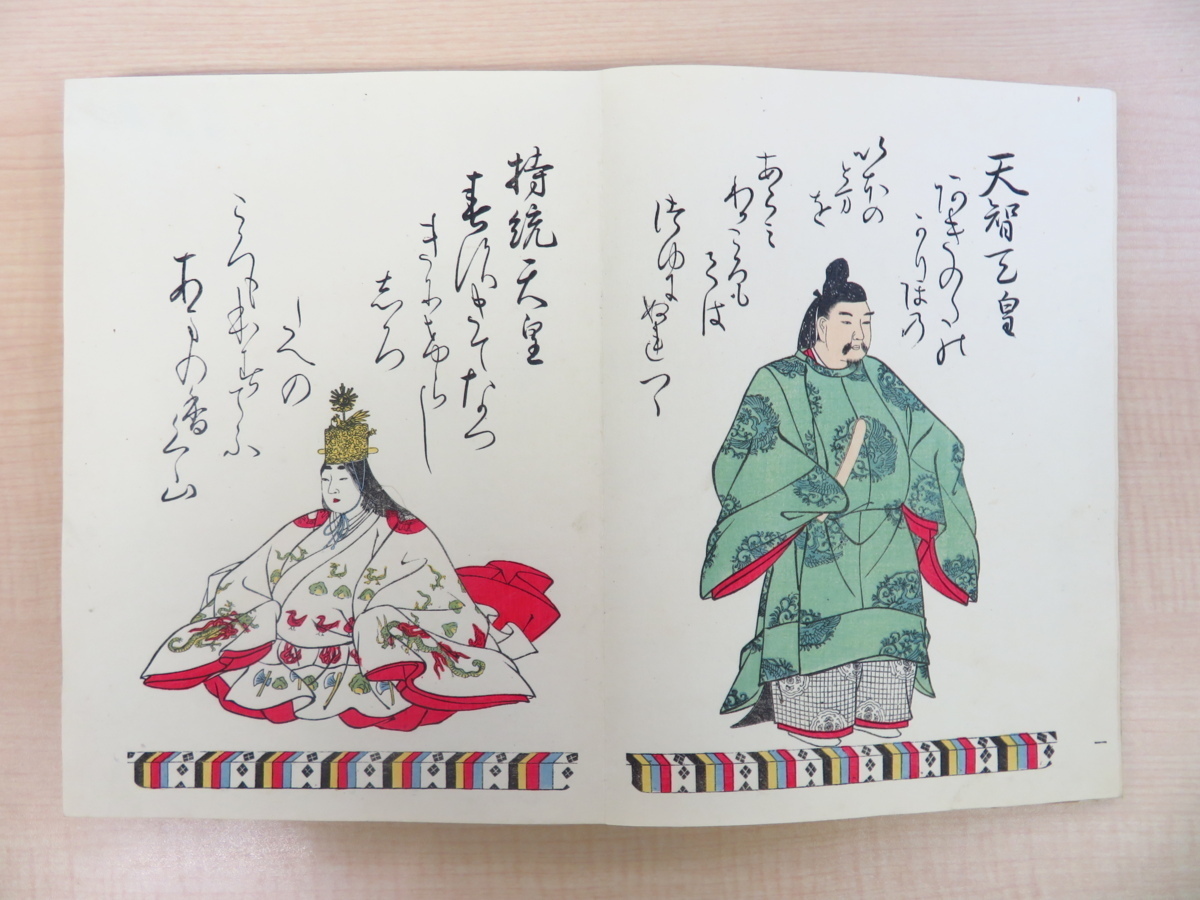 天智天皇
あきのたの
かりほの
いほの
とま
を
あらみ
わかころも
ては
つゆにぬれつゝ
持統天皇
春すきてなつ
きにけらし
しろ
たへの
ころもほすてふ
あまの香く山